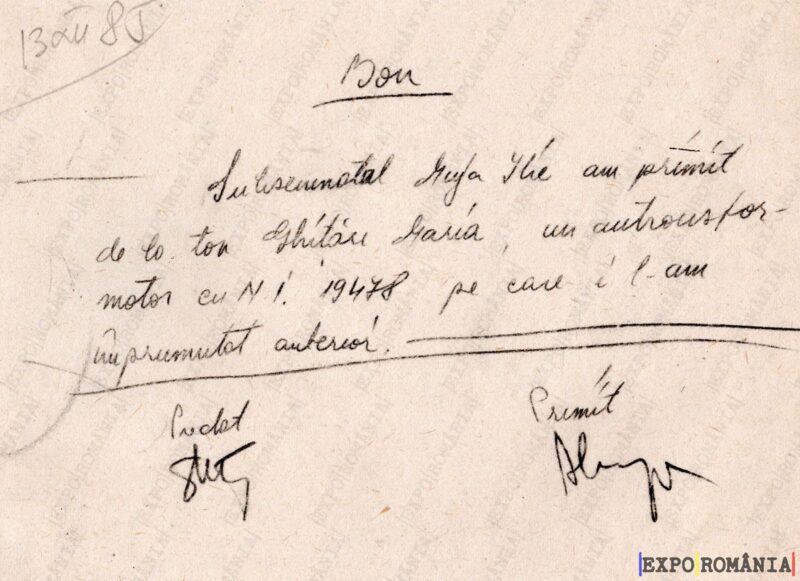 13 XII 85
Bon
Subsemnatul Muja Ilie am primit
de la tov Ghițări Maria, un autotransfor-
mator cu N I. 19478 pe care i l-am
împrumutat anterior.
Predat
Primit
EXPO ROMÂNIA